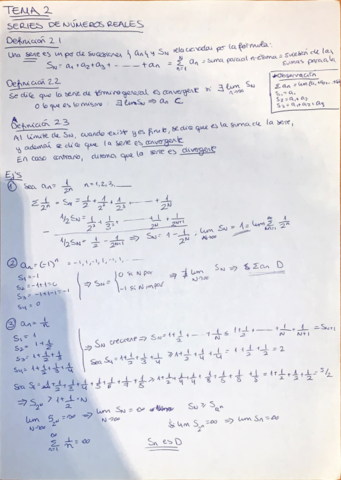 TEMA 2
SERIES DE NÚMEROS REALES
Definición 2.1
Una serie es un par de sucesiones {an} y SN relacionadas por la fórmula:
SN = a1+a2+a3+ ...... +an = Σ an = suma parcial n-ésima = sucesión de las sumas parciales
Definición 2.2
Se dice que la serie de término general es convergente si ∃ lim SN
O lo que es lo mismo: ∃ lim SN ⇒ an C.
*Observación
S1 = a1
S2 = a1+a2
S3 = a1+a2+a3
Definición 2.3
Al límite de SN, cuando existe y es finito, se dice que es la suma de la serie,
y además se dice que la serie es convergente
En caso contrario, diremos que la serie es divergente
Ej's
① Sea an = 1/2^n n=1,2,3,...
Σ 1/2^n = SN = 1/2 + 1/2^2 + 1/2^3 ... + 1/2^N
1/2 SN = 1/2^2 + 1/2^3 + ... + 1/2^N + 1/2^N+1
1/2 SN = 1/2 - 1/2^N+1 ⇒ SN = 1 - 1/2^N ; lim SN = 1 = lim Σ 1/2^n
② an = (-1)^n = -1, 1, -1, 1, -1, ...
S1 = -1
S2 = -1+1 = 0
S3 = -1+1-1 = -1
S4 = 0
⇒ SN = { 0 si N par
-1 si N impar
⇒ ∄ lim SN ⇒ Σ an D
③ an = 1/n
S1 = 1
S2 = 1+1/2
S3 = 1+1/2+1/3
S4 = 1+1/2+1/3+1/4
⇒ SN creciente ⇒ SN = 1+1/2+ ... +1/N ≤ 1+1/2+ ... +1/N+1/N+1 = SN+1
Sea S4 = 1+1/2+1/3+1/4 > 1+1/2+1/4+1/4 = 1+1/2+1/2 = 2
⇒ S2^N > 1+1/2·N
lim S2^N = ∞ ⇒ lim SN = ∞
lim S2^N = ∞ ⇒ lim SN = ∞
Σ 1/n = ∞
SN es D